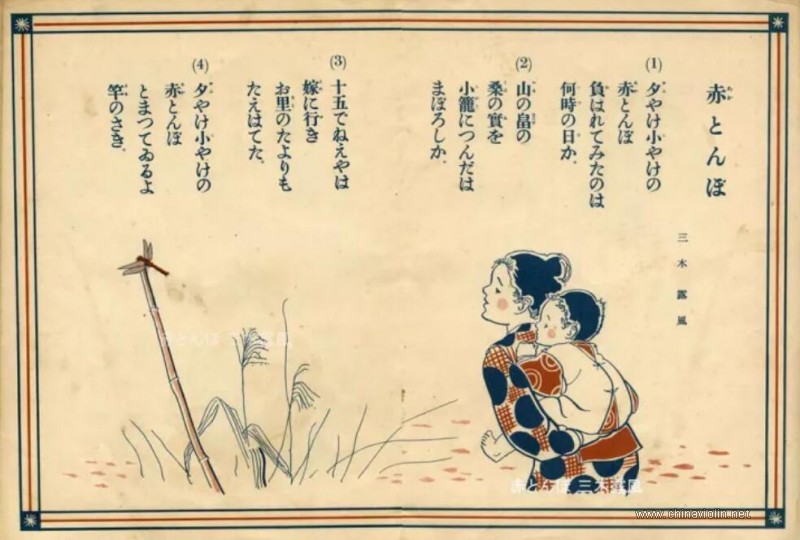 赤とんぼ
三木露風
(1)
夕やけ小やけの
赤とんぼ
負はれてみたのは
何時の日か。
(2)
山の畠の
桑の實を
小籠につんだは
まぼろしか。
(3)
十五でねえやは
嫁に行き
お里のたよりも
たえはてた。
(4)
夕やけ小やけの
赤とんぼ
とまつてゐるよ
竿のさき。
赤とんぼ 三木露風
赤とんぼ 三木露風
www.chinaviolin.net